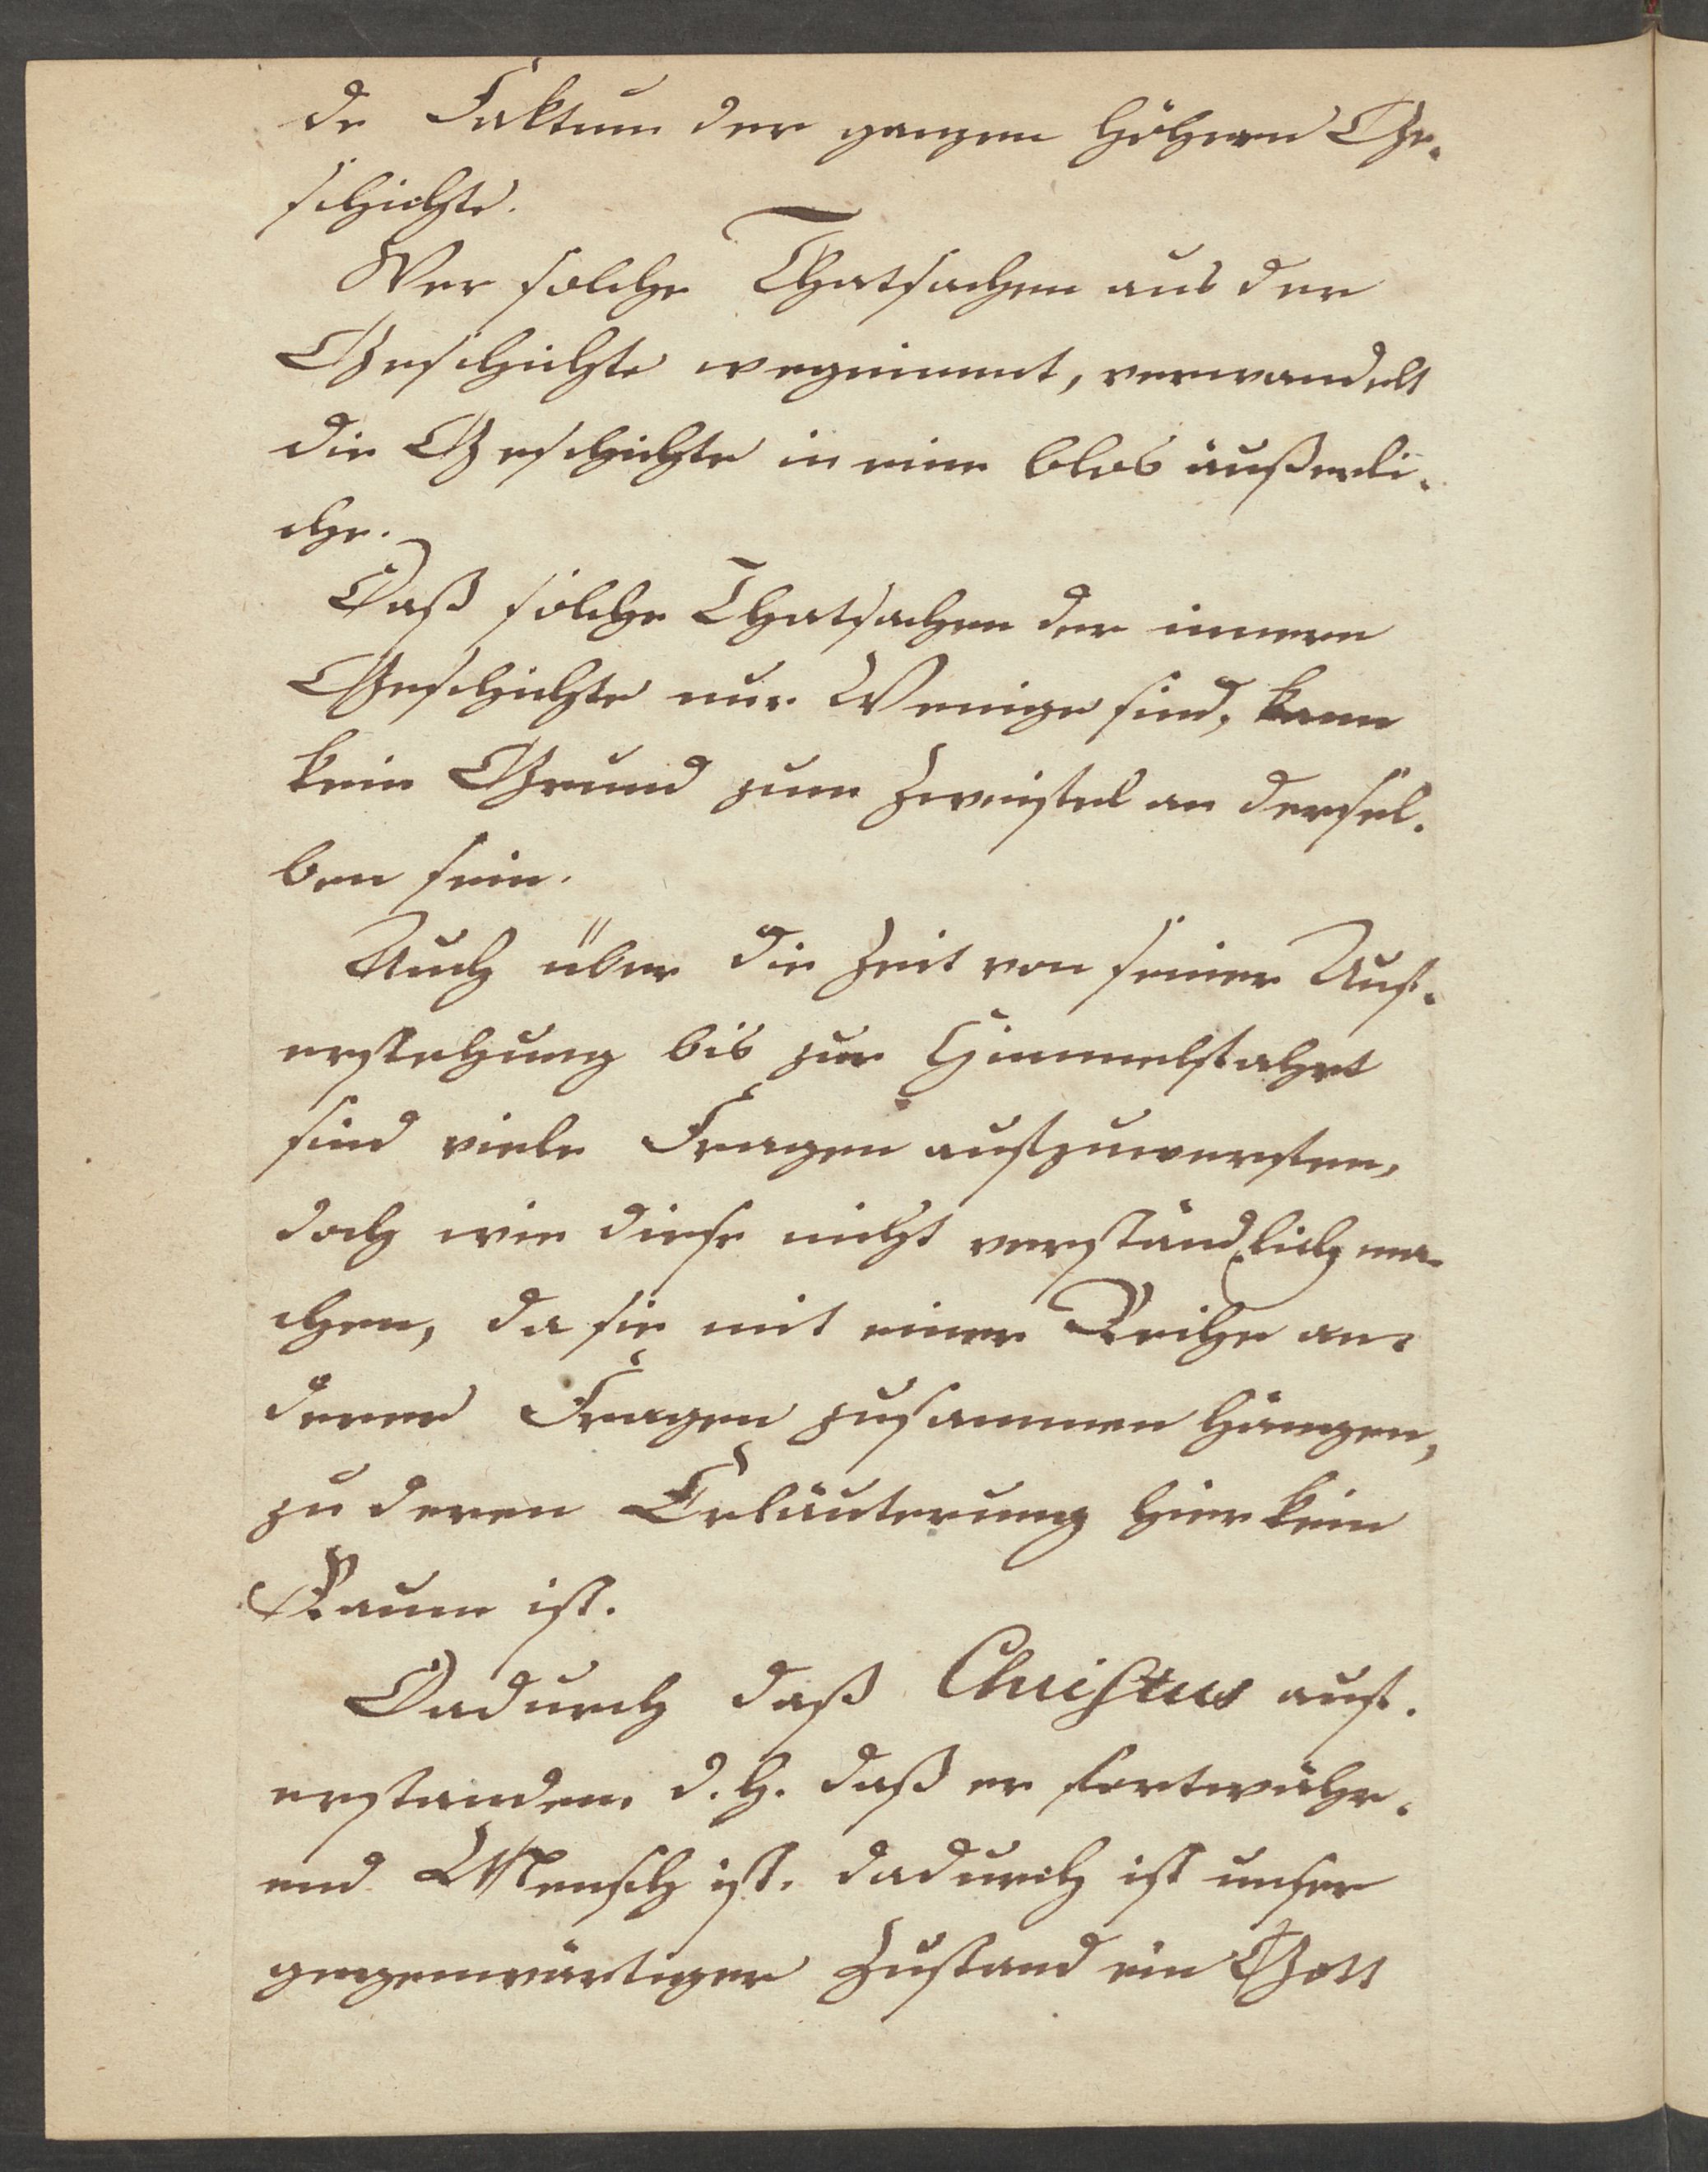 de Faktum der ganzen höhern Ge-
schichte.
Wer solche Thatsachen aus der
Geschichte wegnimmt, verwandelt
die Geschichte in eine blos äußerli-
che.
Daß solche Thatsachen der innern
Geschichte nur Wenige sind, kann
kein Grund zum Zweifel an dersel-
ben sein.
Auch über die Zeit von seiner Auf-
erstehung bis zur Himmelfahrt
sind viele Fragen aufzuwerfen,
doch wir diese nicht verständlich ma-
chen, da sie mit einer Reihe an-
derer Fragen zusammen hängen,
zu deren Erläuterung hier kein
Raum ist.
Dadurch daß Christus auf-
erstanden, d. h. daß er fortwähr-
end Mensch ist. dadurch ist unser
gegenwärtiger Zustand ein Gott